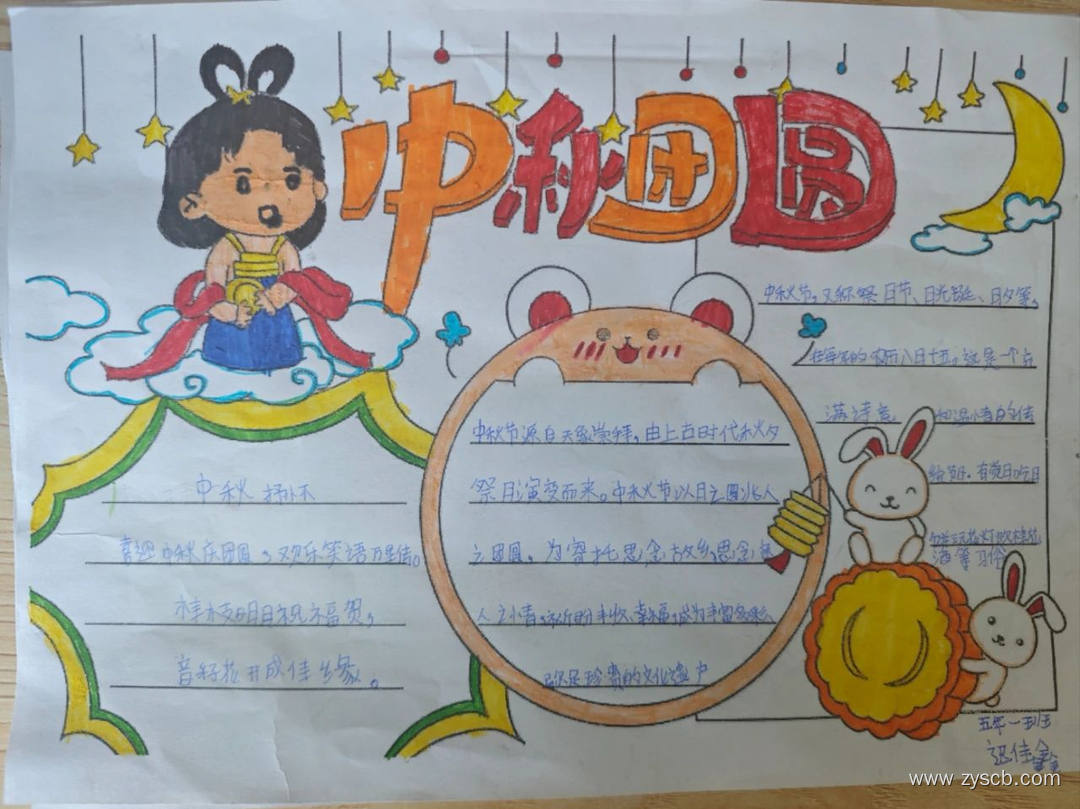 中秋团圆
中秋节，又称祭月节、月光诞、月夕等，
在每年的农历八月十五。这是一个点
满诗意
的传
统节日。有赏月吃月
酒等习俗
中秋节源自天象崇拜，由上古时代秋夕
祭月演变而来。中秋节以月之圆兆人
之团圆，为寄托思念故乡，思念亲
人之情，祈盼丰收、幸福，成为丰富多彩
弥足珍贵的文化遗产
中秋抒怀
喜迎中秋庆团圆，欢乐笑语万里传。
桂枝明月祝福贺，
音好花开成佳缘。
五年一班
迟佳
www.zyscb.com